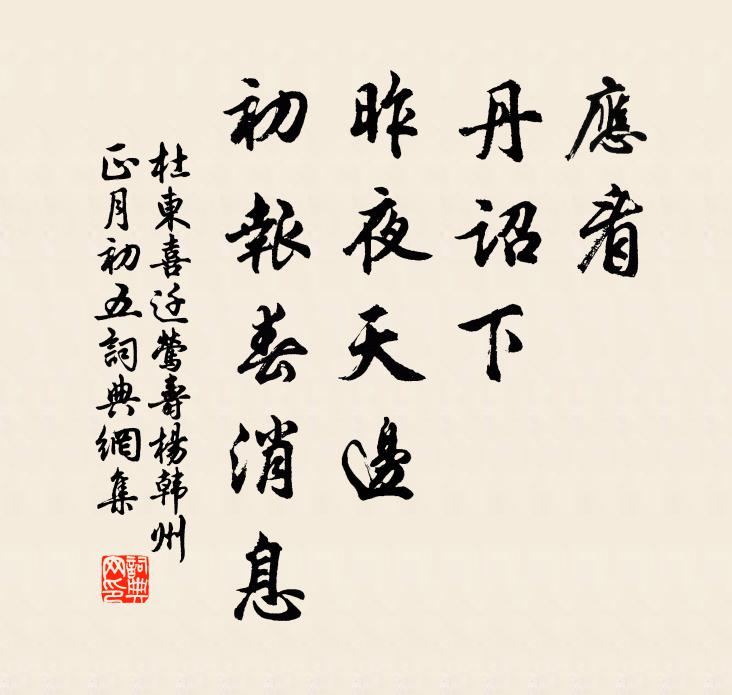 應看
丹詔下
昨夜天邊
初報春消息
杜東喜迁鶯壽楊韩州
正月初五詞典網集
詞典网印